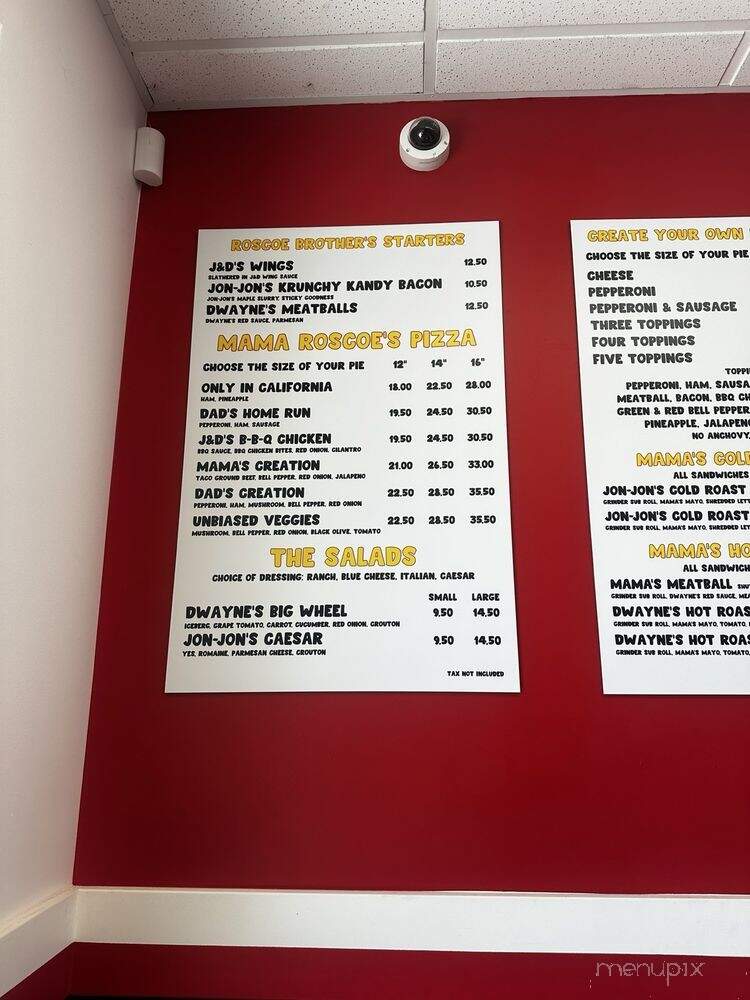 ROSCOE BROTHER'S STARTERS
J&D'S WINGS 12.50
SLATHERED IN J&D WING SAUCE
JON-JON'S KRUNCHY KANDY BACON 10.50
JON-JON'S MAPLE SLURRY, STICKY GOODNESS
DWAYNE'S MEATBALLS 12.50
DWAYNE'S RED SAUCE, PARMESAN
MAMA ROSCOE'S PIZZA
CHOOSE THE SIZE OF YOUR PIE 12" 14" 16"
ONLY IN CALIFORNIA 18.00 22.50 28.00
HAM, PINEAPPLE
DAD'S HOME RUN 19.50 24.50 30.50
PEPPERONI, HAM, SAUSAGE
J&D'S B-B-Q CHICKEN 19.50 24.50 30.50
BBQ SAUCE, BBQ CHICKEN BITES, RED ONION, CILANTRO
MAMA'S CREATION 21.00 26.50 33.00
TACO GROUND BEEF, BELL PEPPER, RED ONION, JALAPENO
DAD'S CREATION 22.50 28.50 35.50
PEPPERONI, HAM, MUSHROOM, BELL PEPPER, RED ONION
UNBIASED VEGGIES 22.50 28.50 35.50
MUSHROOM, BELL PEPPER, RED ONION, BLACK OLIVE, TOMATO
THE SALADS
CHOICE OF DRESSING: RANCH, BLUE CHEESE, ITALIAN, CAESAR
SMALL LARGE
DWAYNE'S BIG WHEEL 9.50 14.50
ICEBERG, GRAPE TOMATO, CARROT, CUCUMBER, RED ONION, CROUTON
JON-JON'S CAESAR 9.50 14.50
YES, ROMAINE, PARMESAN CHEESE, CROUTON
TAX NOT INCLUDED
CREATE YOUR OWN
CHOOSE THE SIZE OF YOUR PIE
CHEESE
PEPPERONI
PEPPERONI & SAUSAGE
THREE TOPPINGS
FOUR TOPPINGS
FIVE TOPPINGS
TOPPI
PEPPERONI, HAM, SAUSA
MEATBALL, BACON, BBQ CH
GREEN & RED BELL PEPPER
PINEAPPLE, JALAPENO
NO ANCHOVY
MAMA'S COLD
ALL SANDWICHES
JON-JON'S COLD ROAST
GRINDER SUB ROLL, MAMA'S MAYO, SHREDDED LETT
JON-JON'S COLD ROAST
GRINDER SUB ROLL, MAMA'S MAYO, SHREDDED LETT
MAMA'S HO
ALL SANDWICH
MAMA'S MEATBALL
GRINDER SUB ROLL, DWAYNE'S RED SAUCE, MEA
DWAYNE'S HOT ROAS
GRINDER SUB ROLL, MAMA'S MAYO, TOMATO,
DWAYNE'S HOT ROAS
GRINDER SUB ROLL, MAMA'S MAYO, TOMATO,
menupix